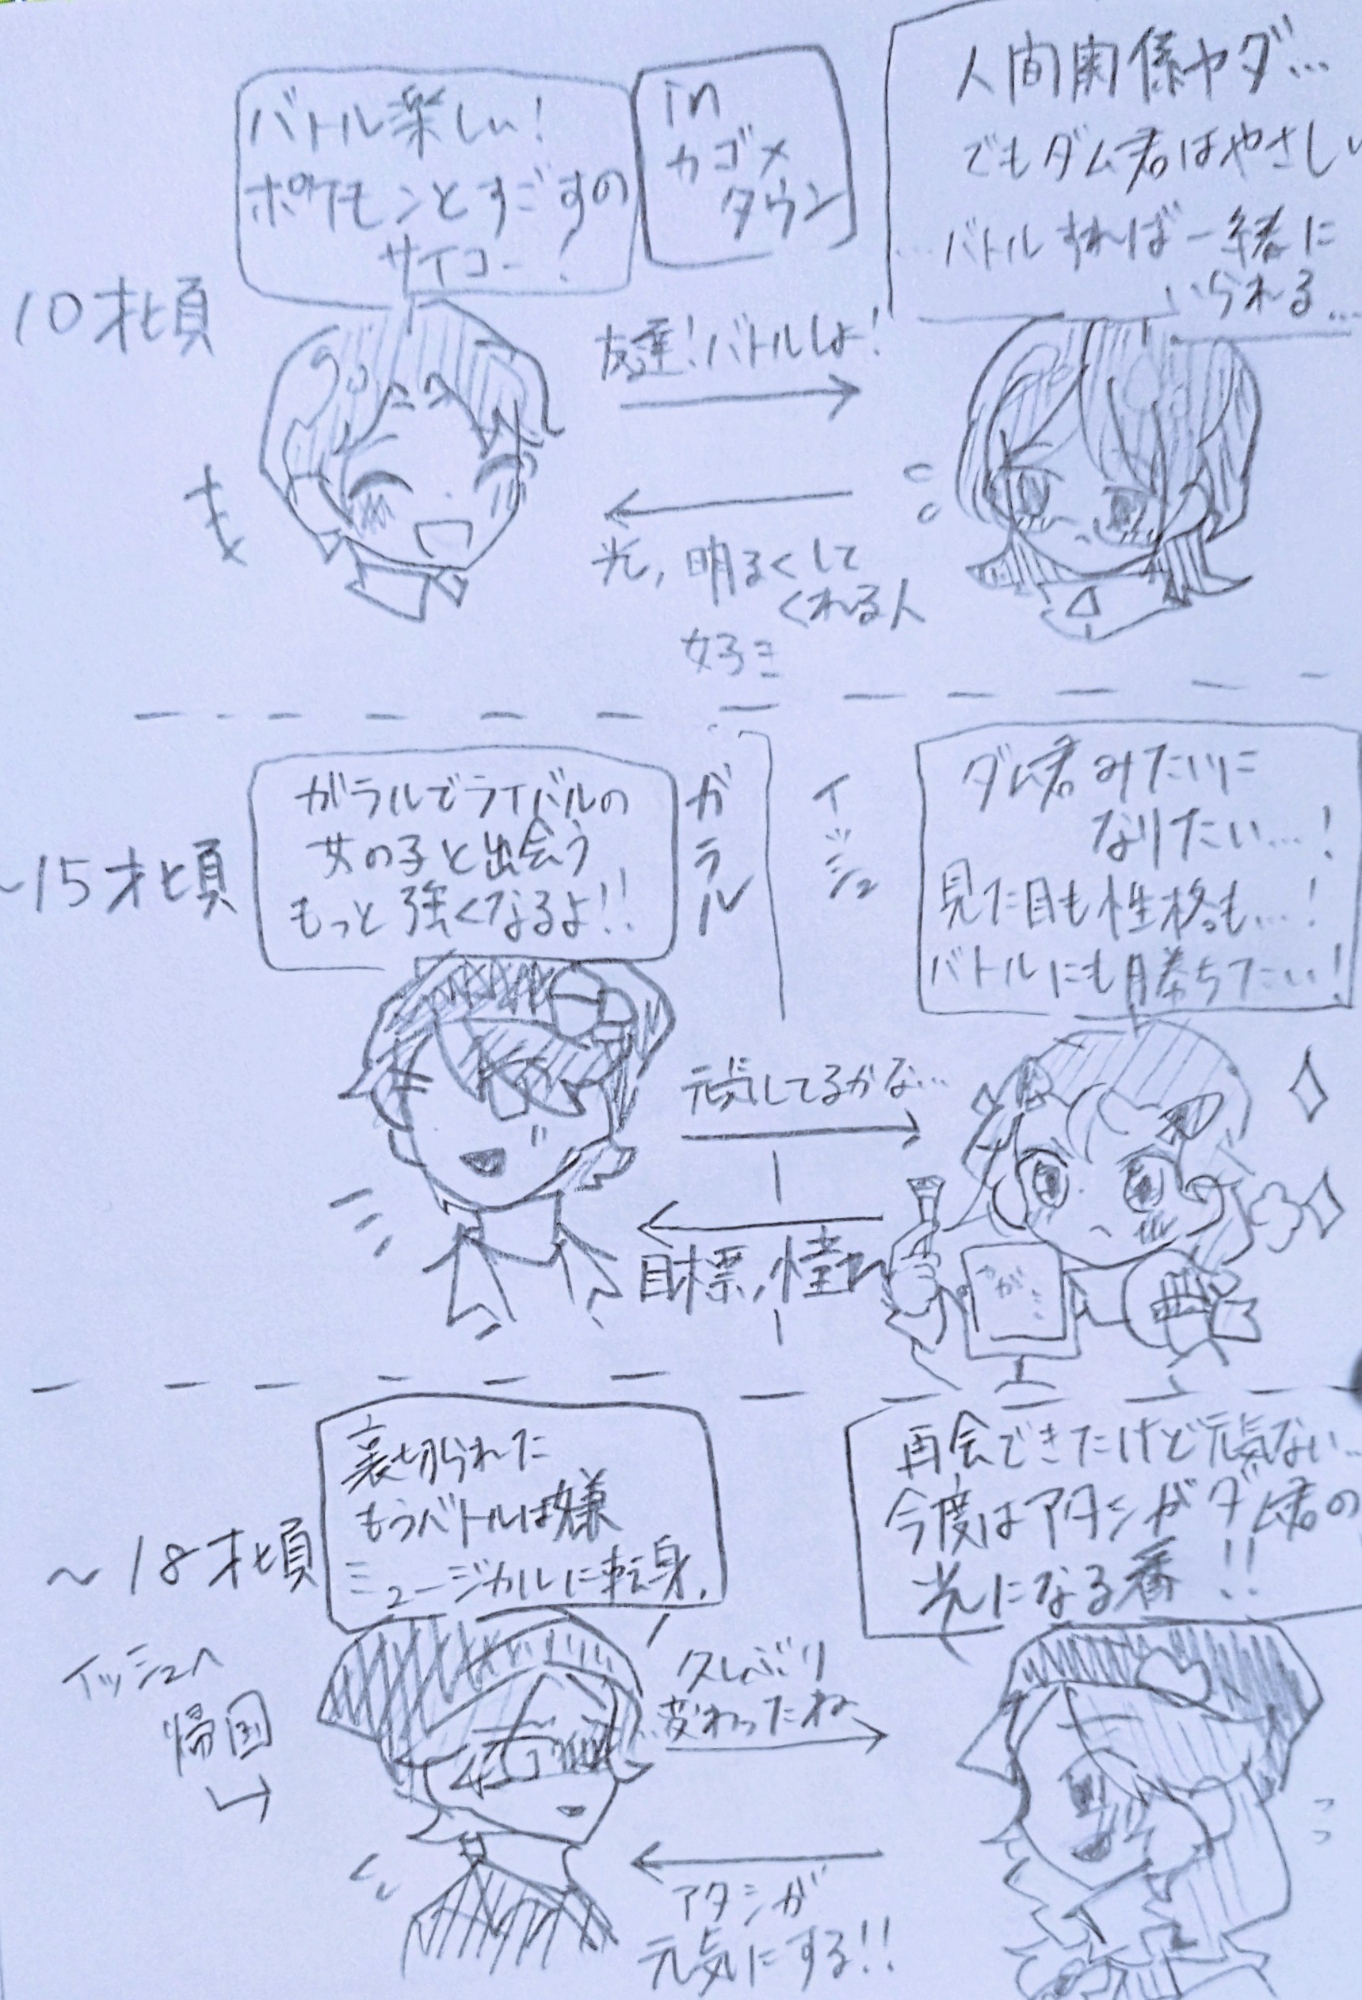 10才頃
バトル楽しい!
ポケモンとすごすの
サイコー!
in
カゴメ
タウン
人間関係ヤダ…
でもダム君はやさしい
…バトルすれば一緒に
いられる…
友達!バトルしよ!
光,明るくして
くれる人
好き
~15才頃
ガラルでライバルの
女の子と出会う
もっと強くなるよ!!
ガラル
イッシュ
ダム君みたいに
なりたい…!
見た目も性格も…!
バトルにも勝ちたい!
元気してるかな…
目標,憧れ
~18才頃
イッシュへ
帰国
裏切られた
もうバトルは嫌
ミュージカルに転身.
再会できたけど元気ない…
今度はアタシがダム君の
光になる番!!
久しぶり
変わったね
アタシが
元気にする!!